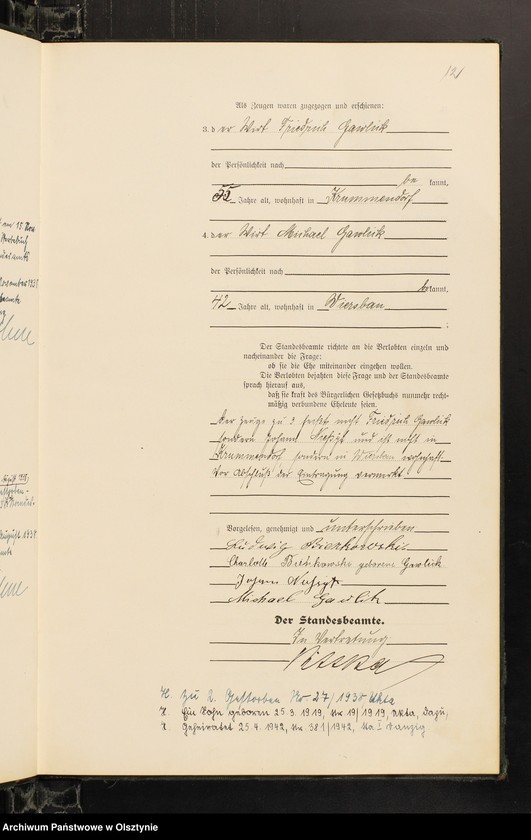 121
Als Zeugen waren zugezogen und erschienen:
3. der Wirt Friedrich Gawlick
der Persönlichkeit nach
be kannt,
Jahre alt, wohnhaft in Krummendorf
4. der Wirt Michael Gawlick
der Persönlichkeit nach
be kannt,
42 Jahre alt, wohnhaft in Wiersbau
;
Der Standesbeamte richtete an die Verlobten einzeln und
nacheinander die Frage:
ob sie die Ehe miteinander eingehen wollen.
Die Verlobten bejahten diese Frage und der Standesbeamte
sprach hierauf aus,
daß sie kraft des Bürgerlichen Gesetzbuchs nunmehr recht-
mäßig verbundene Eheleute seien.
Der Zeuge zu 3 heißt nicht Friedrich Gawlick
sondern Johann und ist nicht in
Krummendorf sondern in Wiersbau wohnhaft
Vor Abschluß der Eintragung vermerkt.
Vorgelesen, genehmigt und unterschrieben
Ludwig
Charlotte geborene Gawlick
Johann
Michael Gawlik
Der Standesbeamte.
In Vertretung
H. zu 2. Gestorben Nr 27/1930 Ukta
H. Ein Sohn geboren 25.3.1919, Nr. 19/1919, Ukta, Dazu,
Geheiratet 25.4.1942, Nr. 381/1942, Sta I Danzig
Archiwum Państwowe w Olsztynie